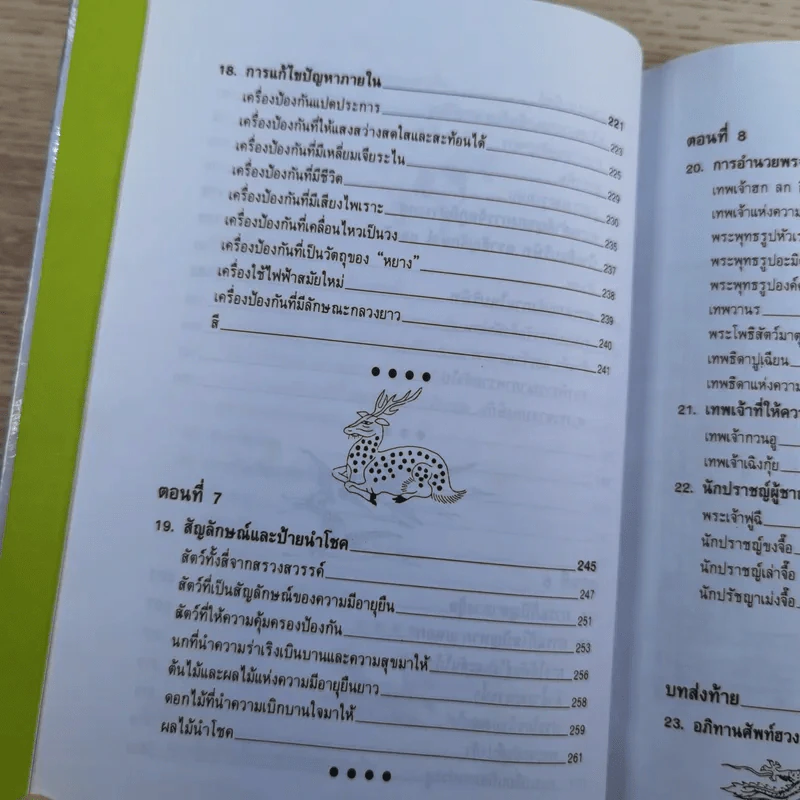 18. การแก้ไขปัญหาภายใน 221
เครื่องป้องกันแปดประการ 223
เครื่องป้องกันที่ให้แสงสว่างสดใสและสะท้อนได้ 225
เครื่องป้องกันที่มีเหลี่ยมเจียระไน 229
เครื่องป้องกันที่มีชีวิต 230
เครื่องป้องกันที่มีเสียงไพเราะ 235
เครื่องป้องกันที่เคลื่อนไหวเป็นวง 237
เครื่องป้องกันที่เป็นวัตถุของ "หยาง" 238
เครื่องใช้ไฟฟ้าสมัยใหม่ 239
เครื่องป้องกันที่มีลักษณะกลวงยาว 240
สี 241
ตอนที่ 7
19. สัญลักษณ์และป้ายนำโชค 245
สัตว์ทั้งสี่จากสรวงสวรรค์ 247
สัตว์ที่เป็นสัญลักษณ์ของความมีอายุยืน 251
สัตว์ที่ให้ความคุ้มครองป้องกัน 253
นกที่นำความร่าเริงเบิกบานและความสุขมาให้ 256
ต้นไม้และผลไม้แห่งความมีอายุยืนยาว 258
ดอกไม้ที่นำความเบิกบานใจมาให้ 259
ผลไม้นำโชค 261
ตอนที่ 8
20. การอำนวยพระ
เทพเจ้าฮก ลก
เทพเจ้าแห่งความ
พระพุทธรูปหัวเร
พระพุทธรูปอะมิ
พระพุทธรูปองค์
เทพวานร
พระโพธิสัตว์มาต
เทพธิดาปูเฉียน
เทพธิดาแห่งความ
21. เทพเจ้าที่ให้ควา
เทพเจ้ากวนอู
เทพเจ้าเฉิงกุ้ย
22. นักปราชญ์ผู้ชา
พระเจ้าฟูฉี
นักปราชญ์ขงจื๊อ
นักปราชญ์เล่าจื๊อ
นักปรัชญาเม่งจื๊อ
บทส่งท้าย
23. อภิทานศัพท์ฮวง